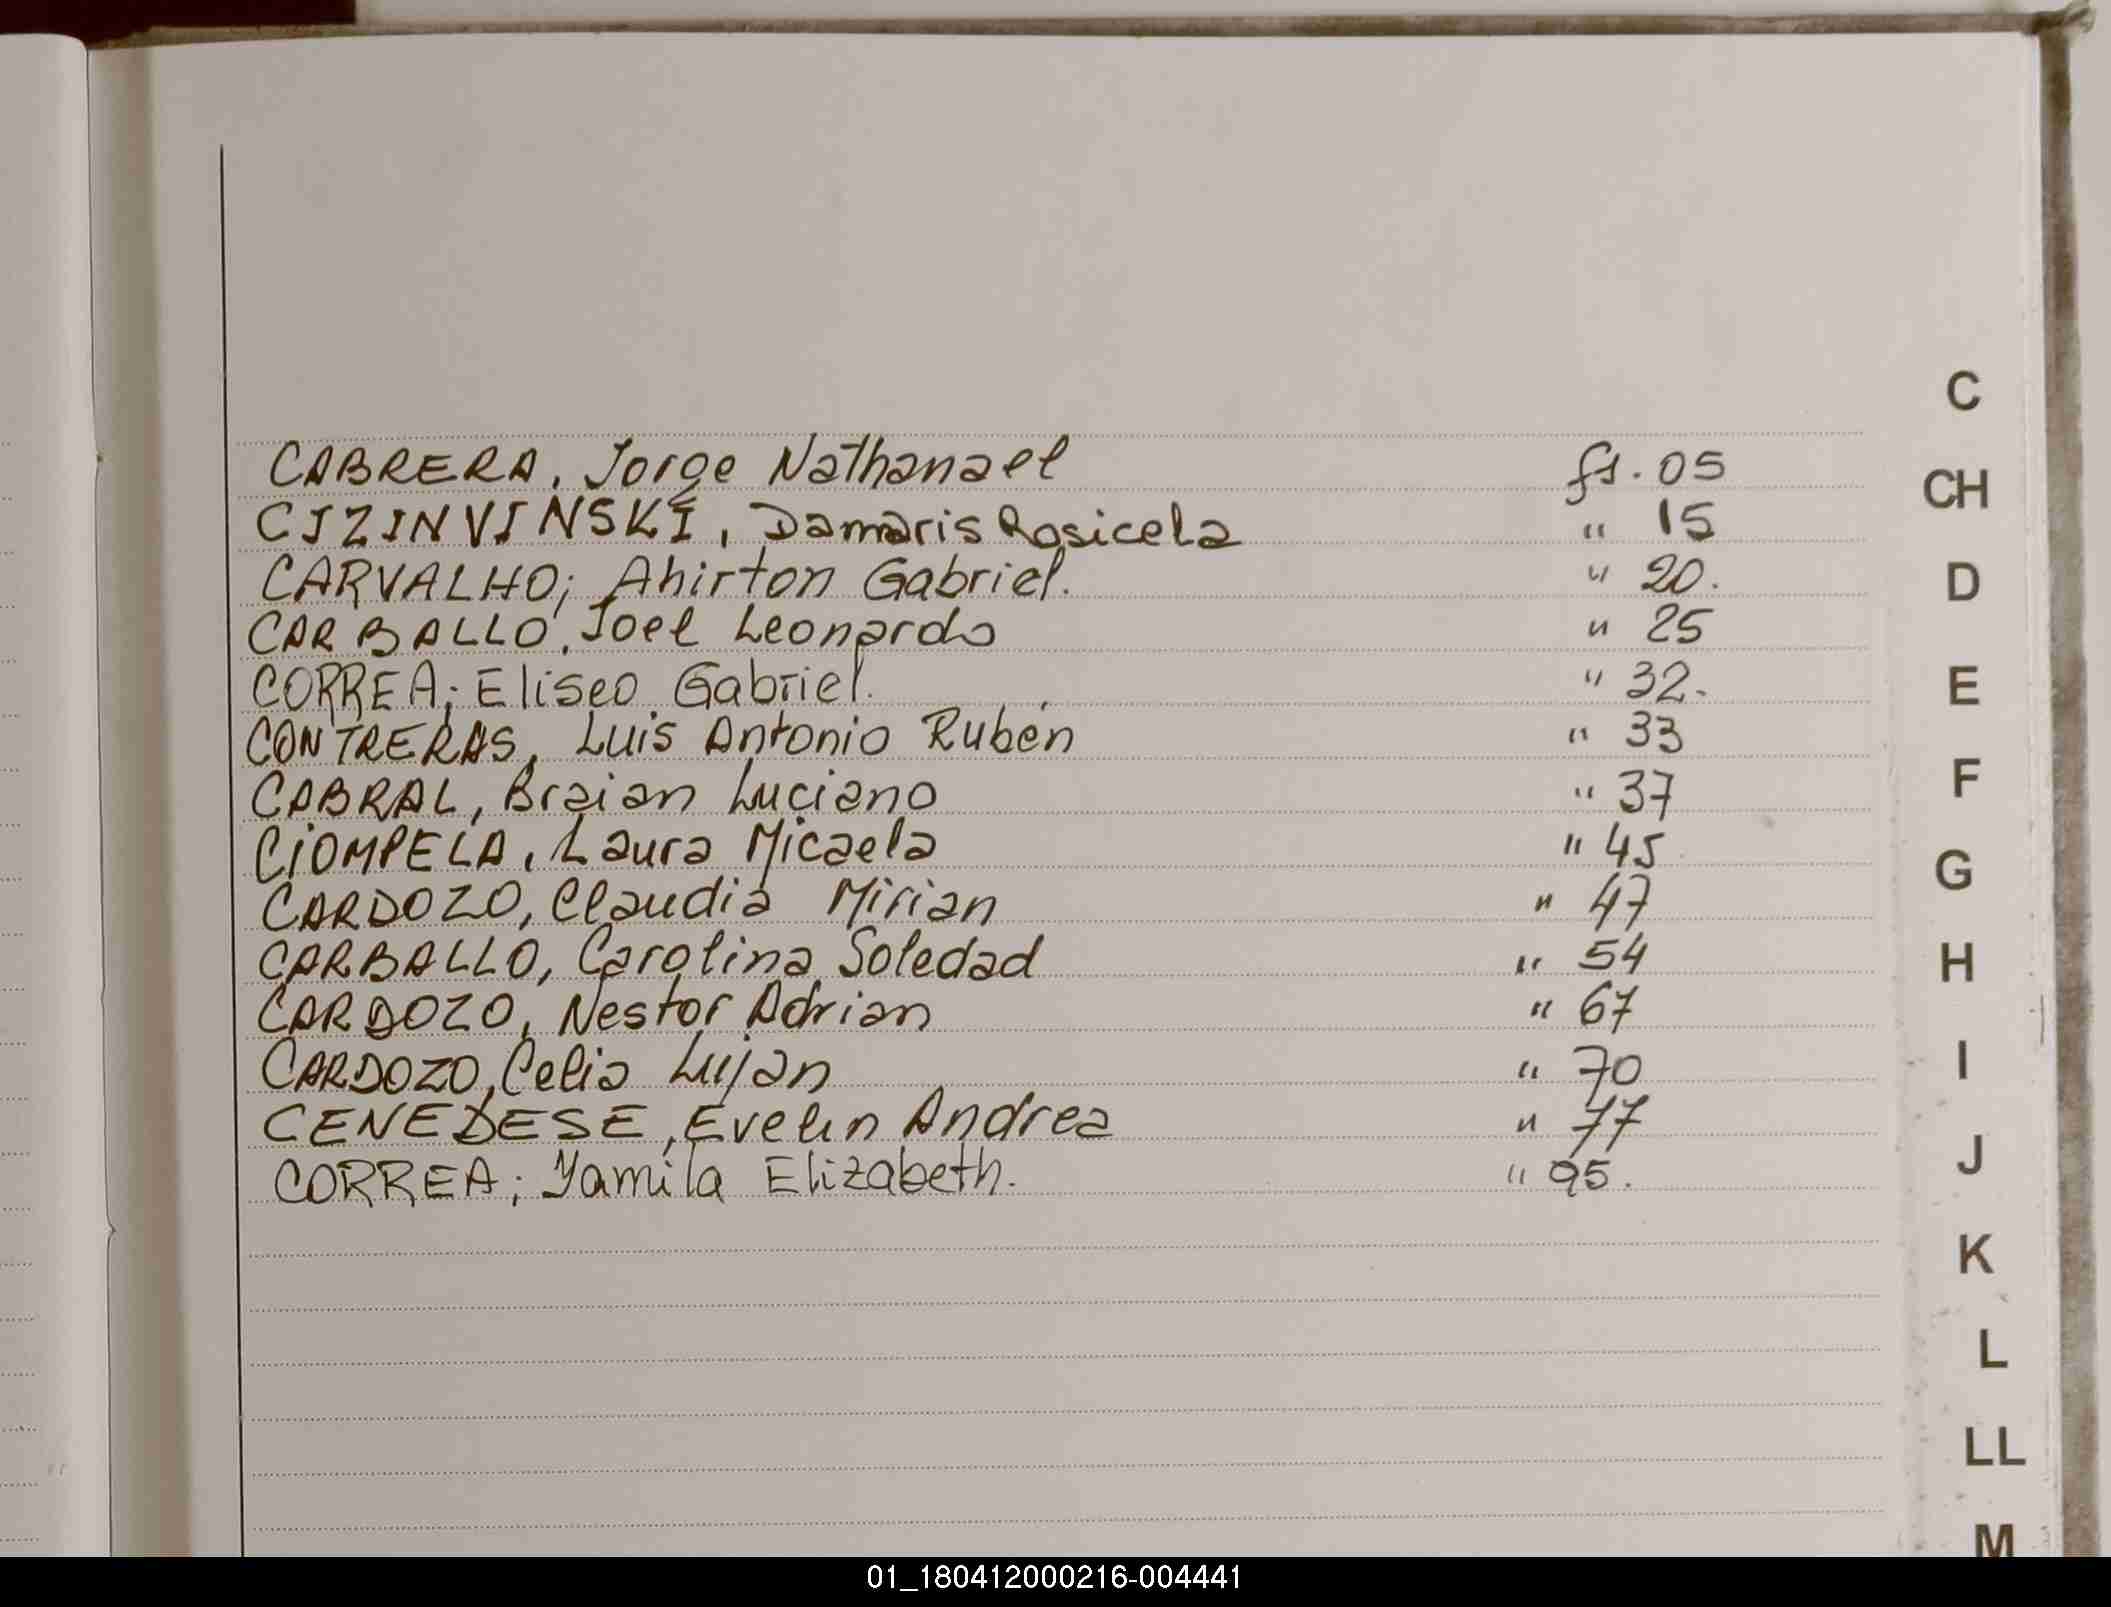 CABRERA, Jorge Nathanael fs. 05
CIZINVINSKI, Damaris Rosicela " 15
CARVALHO; Ahirton Gabriel. " 20.
CARBALLO, Joel Leonardo " 25
CORREA; Eliseo Gabriel. " 32.
CONTRERAS, Luis Antonio Rubén " 33
CABRAL, Braian Luciano " 37
CIOMPELA, Laura Micaela " 45
CARDOZO, Claudia Mirian " 47
CARBALLO, Carolina Soledad " 54
CARDOZO, Nestor Adrian " 67
CARDOZO, Celia Lujan " 70
CENEDESE, Evelin Andrea " 77
CORREA; Yamila Elizabeth. " 95.
C
CH
D
E
F
G
H
I
J
K
L
LL
M
01_180412000216-004441